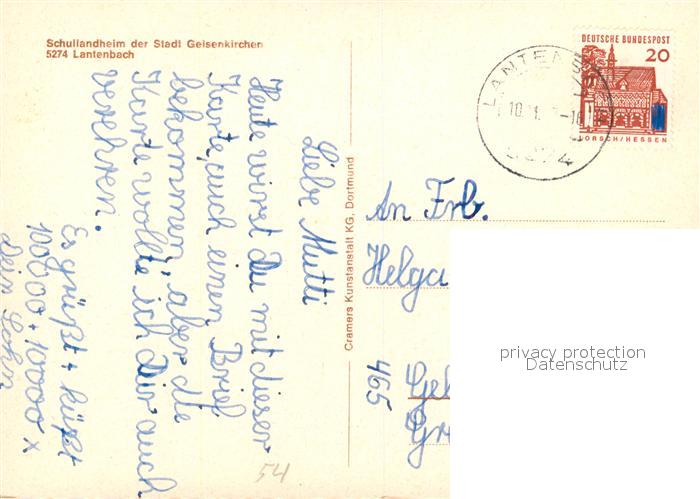 Schullandheim der Stadt Gelsenkirchen
5274 Lantenbach
Liebe Mutti
Heute wirst Du mit dieser
Karte, auch einen Brief
bekommen, aber die
Karte wollte ich Dir auch
verehren.
Es grüßt + küßt
100000 + 100000 x
dein Sohn
Cramers Kunstanstalt KG. Dortmund
DEUTSCHE BUNDESPOST
20
LORSCH/HESSEN
An Frl.
Helga
465
Gel
Gr
privacy protection
Datenschutz
54